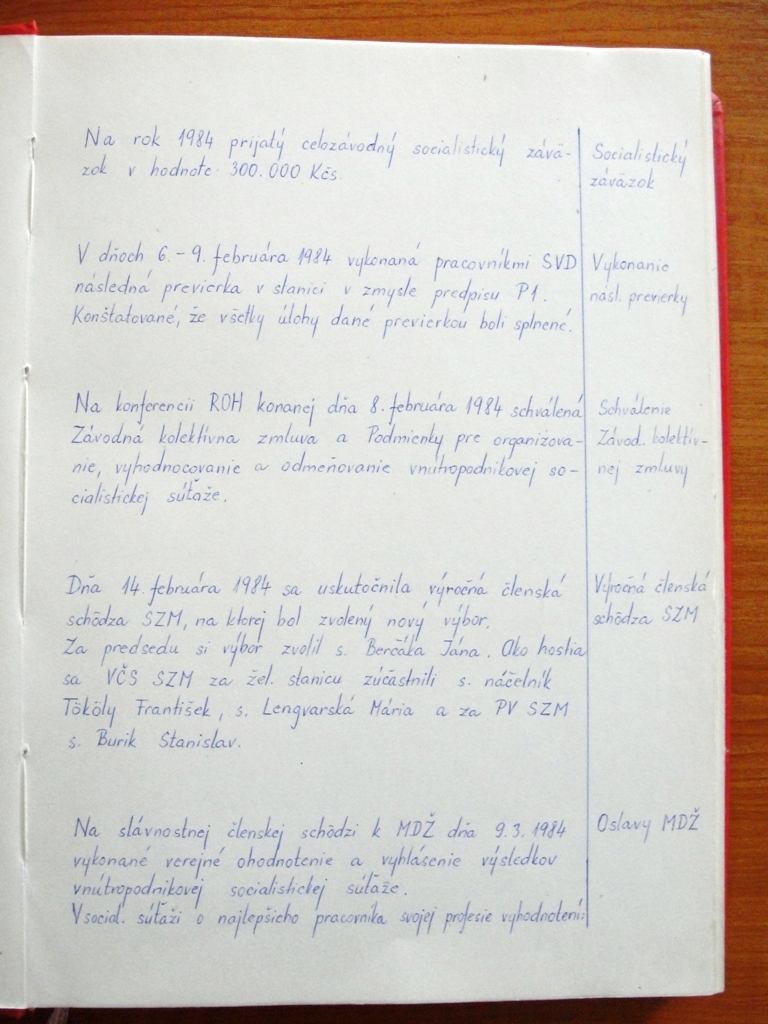 Na rok 1984 prijatý celozávodný socialistický závä-
zok v hodnote 300.000 Kčs.
Socialistický
záväzok
V dňoch 6.-9. februára 1984 vykonaná pracovníkmi SVD
následná previerka v stanici v zmysle predpisu P1.
Konštatované, že všetky úlohy dané previerkou boli splnené.
Vykonanie
násl. previerky
Na konferencii ROH konanej dňa 8. februára 1984 schválená
Závodná kolektívna zmluva a Podmienky pre organizova-
nie, vyhodnocovanie a odmeňovanie vnútropodnikovej so-
cialistickej súťaže.
Schválenie
Závod. kolektív-
nej zmluvy
Dňa 14. februára 1984 sa uskutočnila výročná členská
schôdza SZM, na ktorej bol zvolený nový výbor.
Za predsedu si výbor zvolil s. Berčáka Jána. Ako hostia
sa VČS SZM za žel. stanicu zúčastnili s. náčelník
Tököly František, s. Lengvarská Mária a za PV SZM
s. Burik Stanislav.
Výročná členská
schôdza SZM
Na slávnostnej členskej schôdzi k MDŽ dňa 9.3.1984
vykonané verejné ohodnotenie a vyhlásenie výsledkov
vnútropodnikovej socialistickej súťaže.
V social. súťaži o najlepšieho pracovníka svojej profesie vyhodnotení:
Oslavy MDŽ